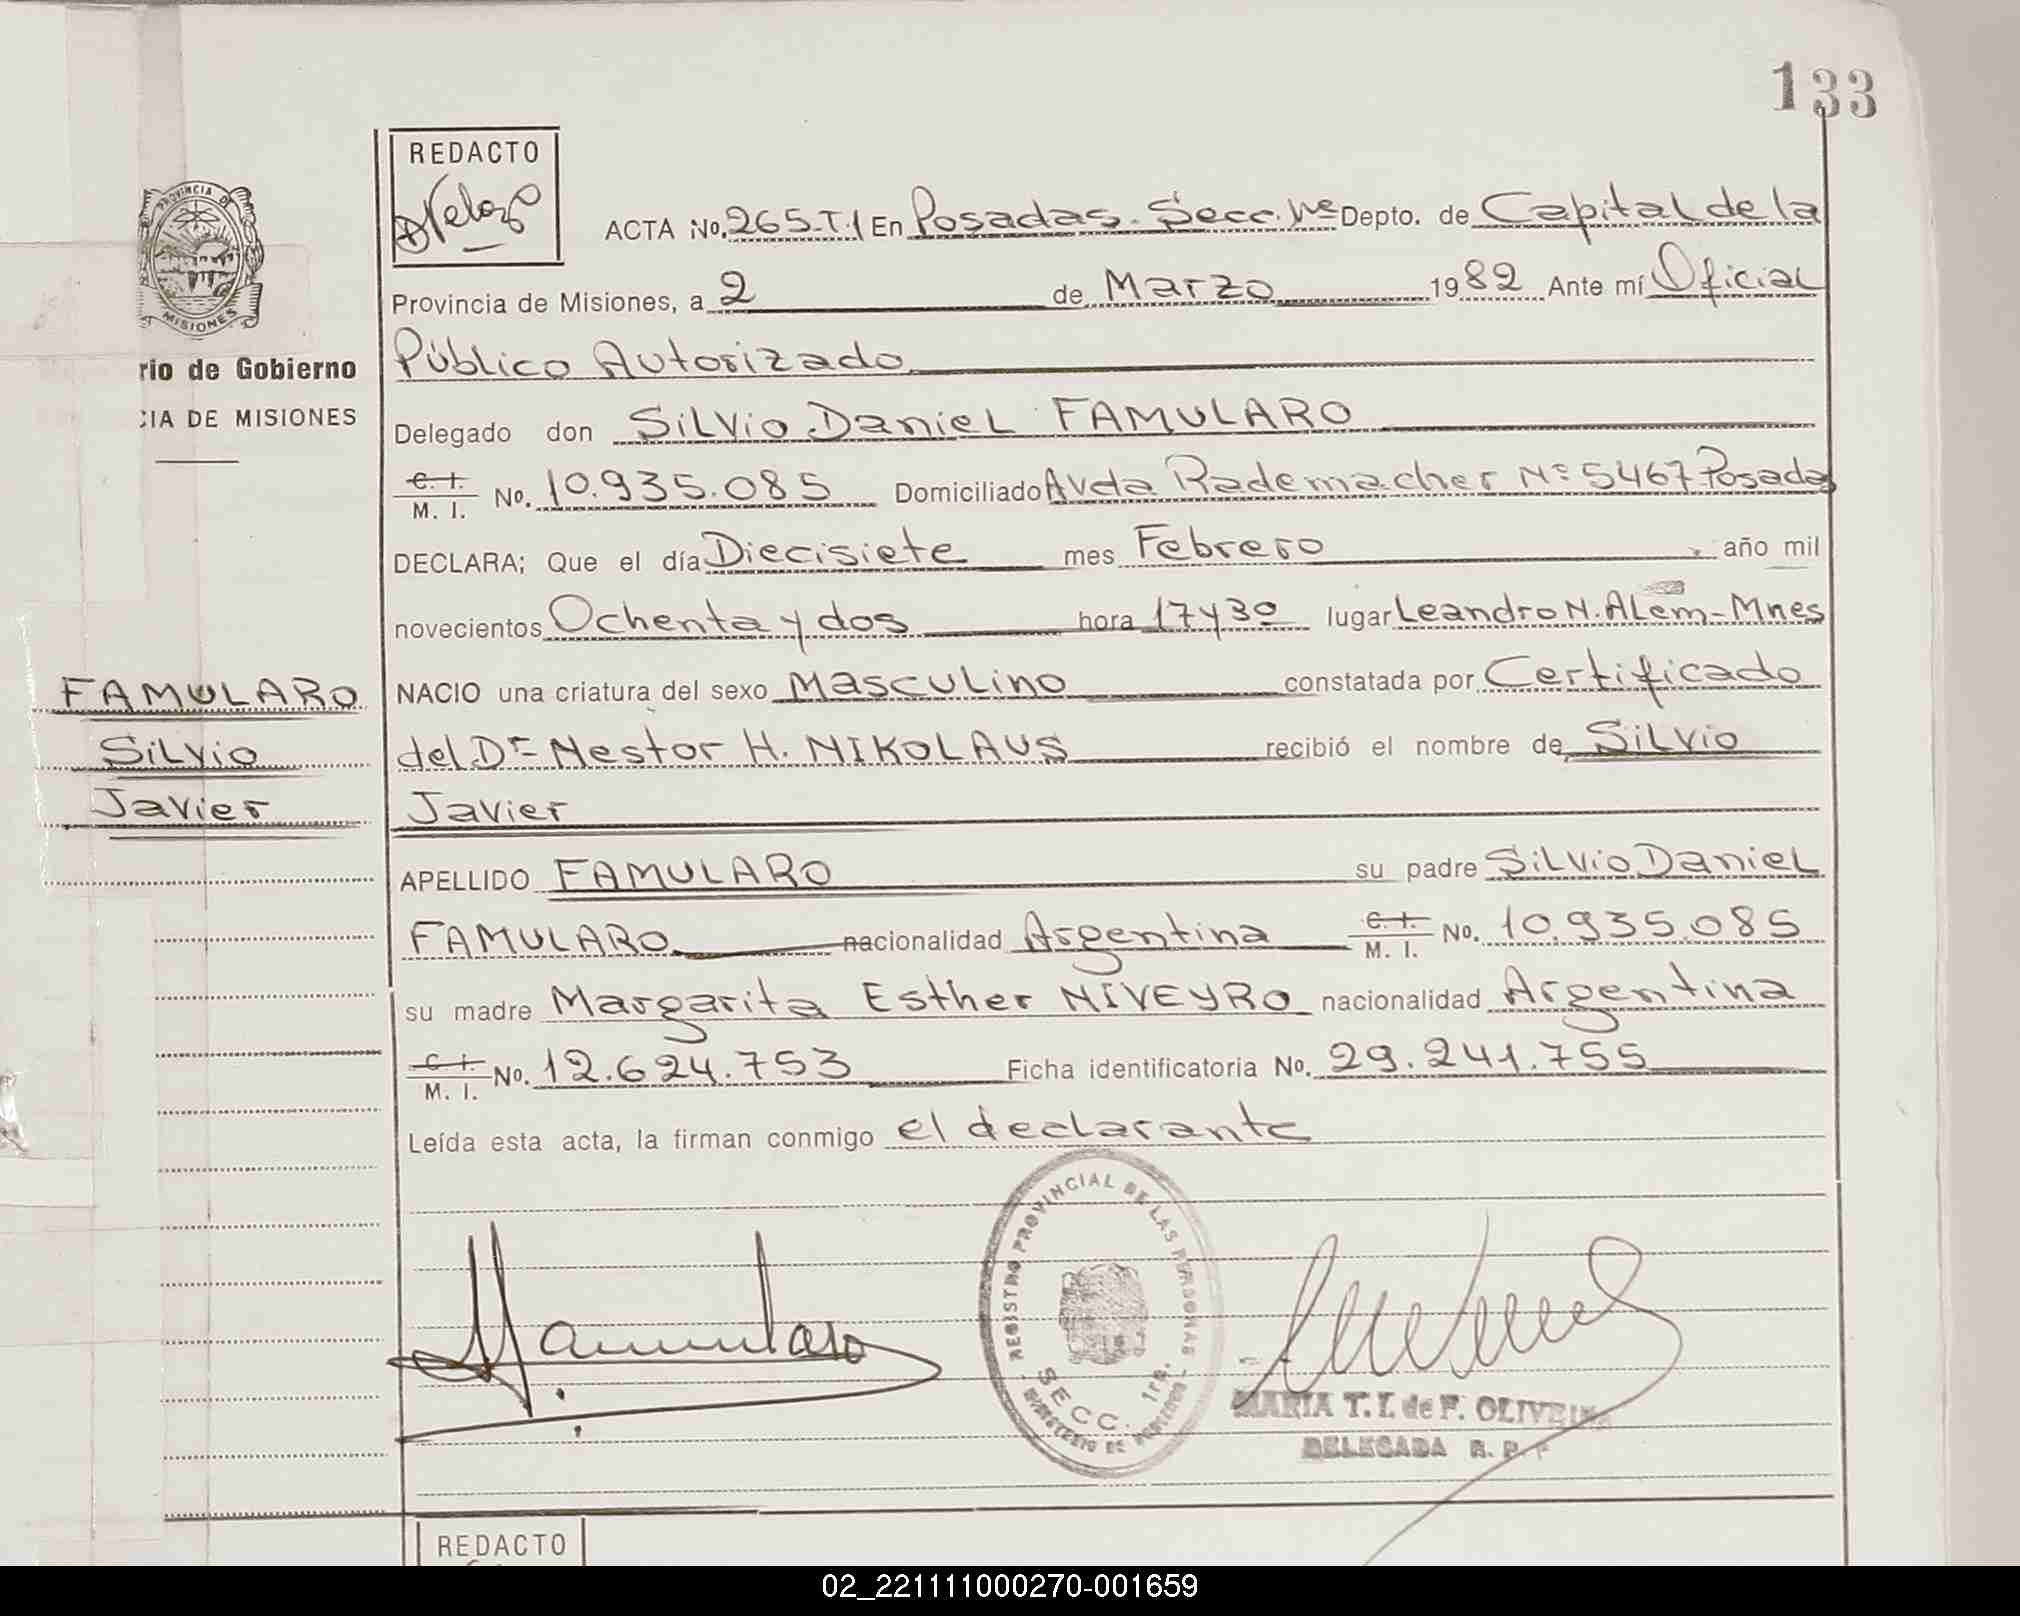 133
REDACTO
ACTA No. 265-T.1 En Posadas. Secc. 1ra Depto. de Capital de la
PROVINCIA DE
MISIONES
Provincia de Misiones, a 2 de Marzo 1982 Ante mí Oficial
rio de Gobierno
Público Autorizado
CIA DE MISIONES
Delegado don Silvio Daniel FAMULARO
C. I. M. I. No. 10.935.085 Domiciliado Avda Rademacher Nº 5467 Posadas
DECLARA; Que el día Diecisiete mes Febrero año mil
novecientos Ochenta y dos hora 17 y 30 lugar Leandro N. Alem-Mnes
FAMULARO
NACIO una criatura del sexo Masculino constatada por Certificado
Silvio
del Dr Nestor H. NIKOLAUS recibió el nombre de Silvio
Javier
Javier
APELLIDO FAMULARO su padre Silvio Daniel
FAMULARO nacionalidad Argentina C. I. M. I. No. 10.935.085
su madre Margarita Esther NIVEYRO nacionalidad Argentina
C. I. M. I. No. 12.624.753 Ficha identificatoria No. 29.241.755
Leída esta acta, la firman conmigo el declarante
REGISTRO PROVINCIAL DE LAS PERSONAS
SECC. 1ra.
MINISTERIO DE GOBIERNO
Famularo
MARIA T. I. de F. OLIVEIRA
DELEGADA R. P. P.
REDACTO
02_221111000270-001659